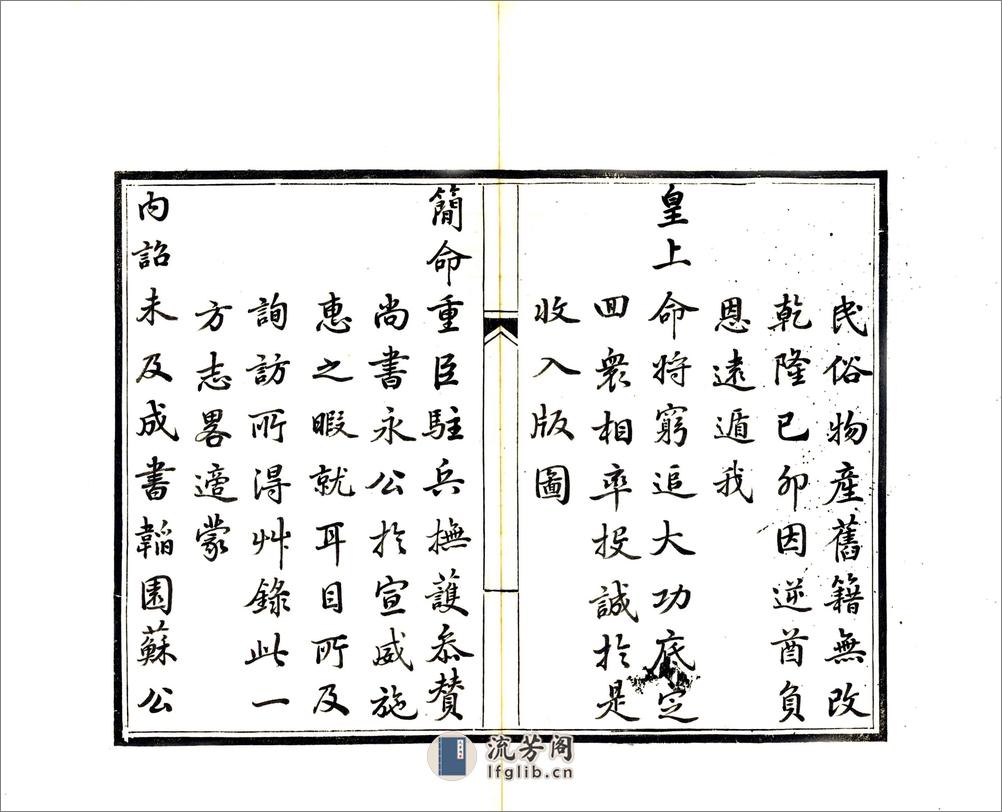 民俗物產舊籍無改
乾隆己卯因逆酋負
恩遠遁我
皇上命將窮追大功底定
回衆相率投誠於是
收入版圖
簡命重臣駐兵撫護叅贊
尚書永公於宣威施
惠之暇就耳目所及
詢訪所得艸錄此一
方志畧適蒙
内詔未及成書韜園蘇公
流芳阁
lfglib.cn